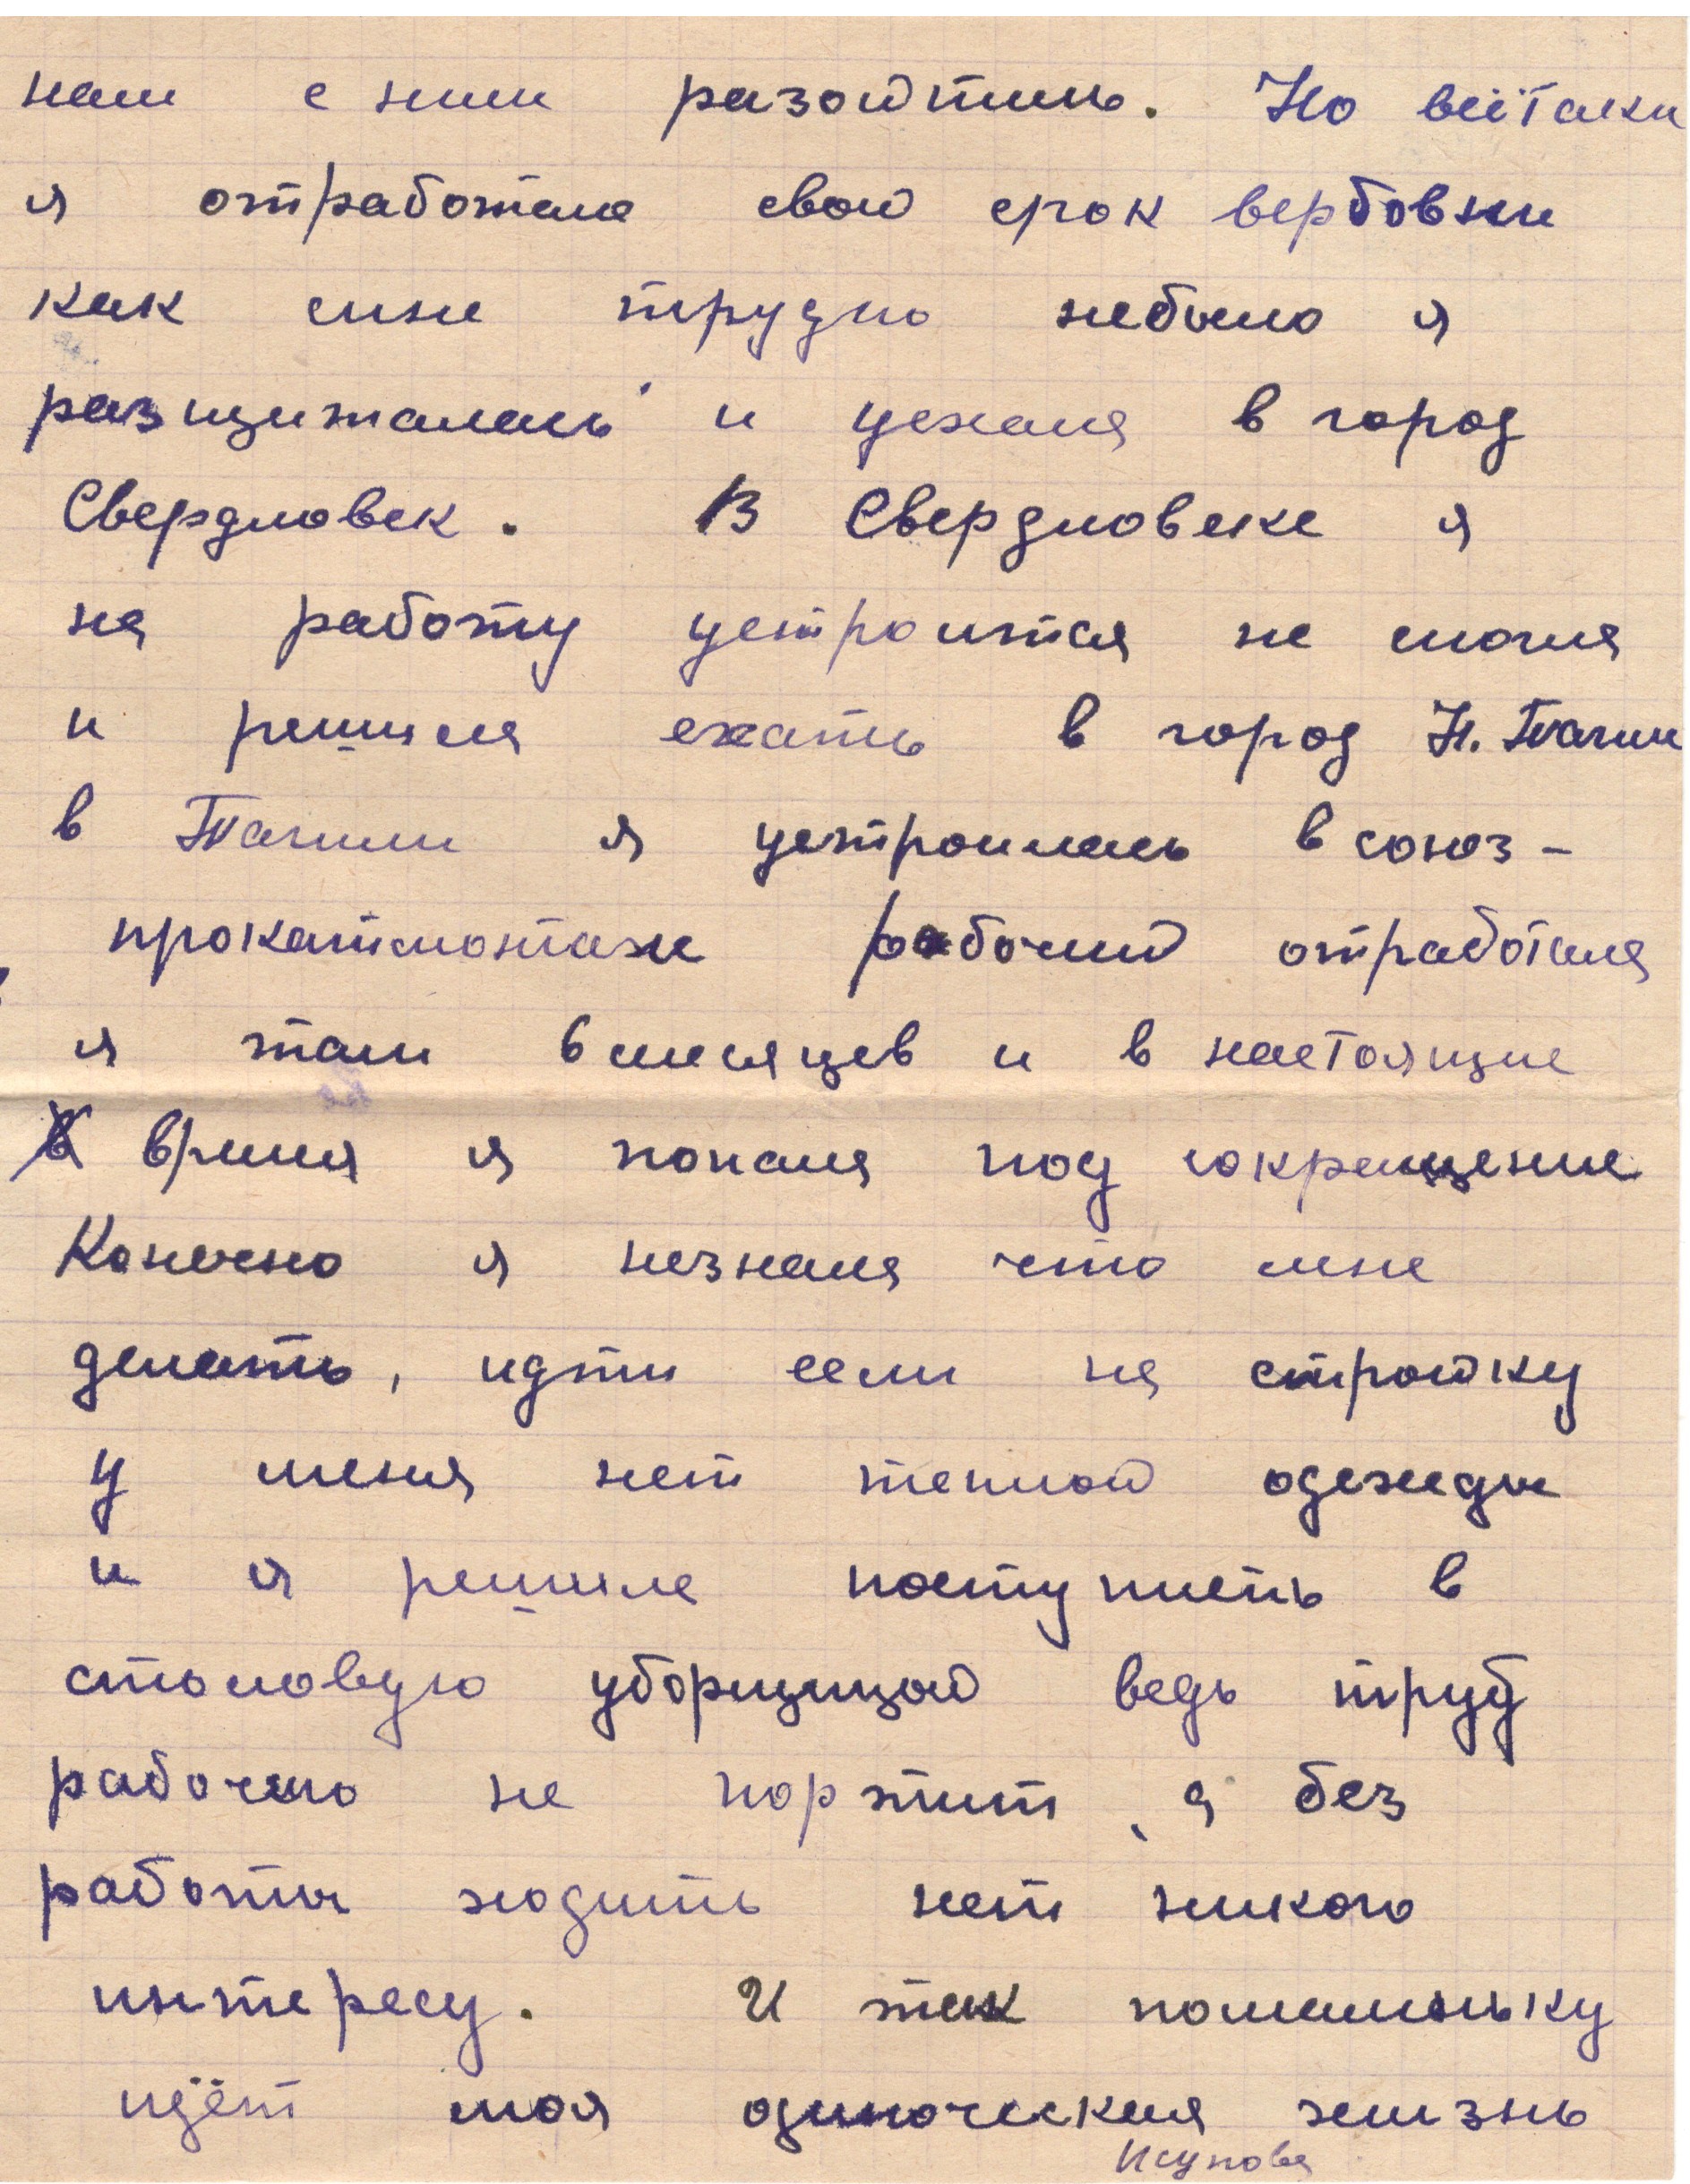 нам с ним разойтись. Но всётаки
я отработала свой срок вербовки
как мне трудно небыло я
разщиталась и уехала в город
Свердловск. В Свердловске я
на работу устроится не могла
и решила ехать в город Н. Тагил
в Тагили я устроилась в союз-
прокатмонтаж рабочий отработала
я там 6 месяцев и в настоящие
время я попала под сокращение
Конечно я незнала что мне
делать, идти если на стройку
у меня нет теплой одежды
и я решила поступить в
столовую уборщицой ведь труд
рабочего не портит, а без
работы ходить нет никого
интересу. И так помаленьку
идёт моя одиноческая жизнь
Исупова